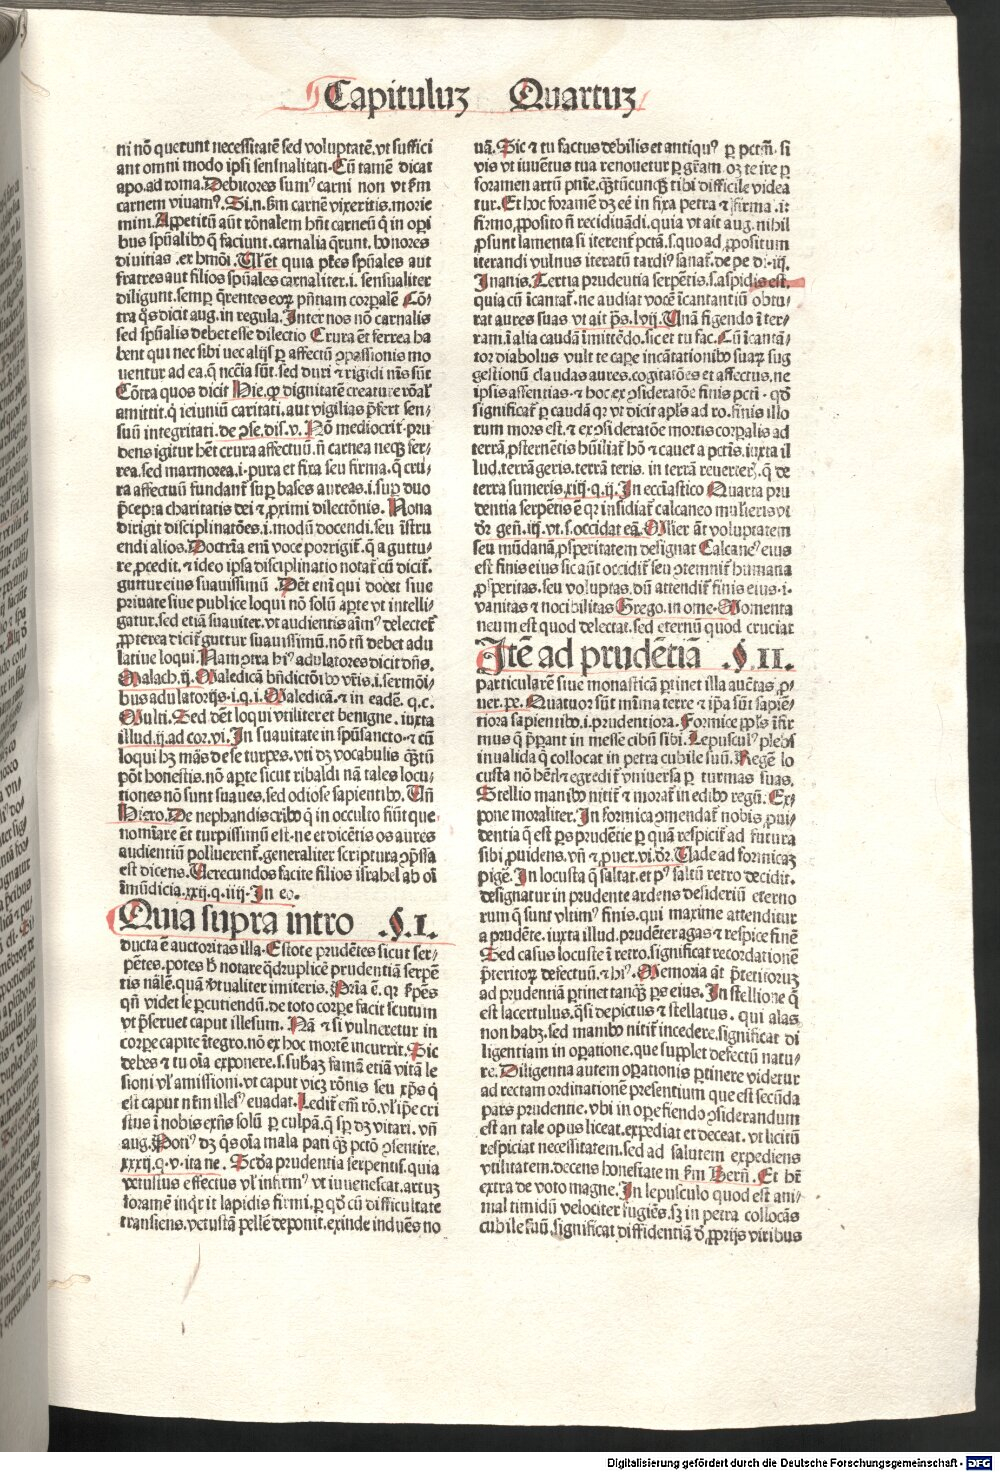 Capituluz Quartuz
ni nō querunt necessitatē sed voluptatē. vt suffici
ant omni modo ipsi sensualitati. Cū tamē dicat
apo. ad roma. Debitores sumꝰ carni non vt ẜm
carnem viuamꝰ. Si.n. ẜm carnē vixeritis. morie
mini. Appetitū aūt rōnalem hn̄t carneū q̇ in opi
bus spūalibꝰ q̄ faciunt. carnalia q̄runt. honores
diuitias. et hmōi. Ul̓ et̄ quia pr̄es spūales aut
fratres aut filios spūales carnaliter .i. sensualiter
diligunt. semꝑ q̄rentes eoꝝ pn̄tiam corꝑalē Cō
tra q̊s dicit aug. in regula. Inter nos nō carnalis
sed spūalis debet esse dilectio Crura et̄ ferrea ha
bent qui nec sibi nec alijs ꝑ affectū ꝯpassionis mo
uentur ad ea. q̄ nccīa sūt. sed duri ⁊ rigidi nīs sūt
Cōtra quos dicit Hie. ꝙ dignitatē creature rōal̓
amittit. q̇ ieiuniū caritati. aut vigilias p̄fert sen⸗
suū integritati. de ꝯse. dis. v. Nō mediocrit̓. pru
dens igitur het̄ crura affectuū. n̄ carnea neqꝫ fer⸗
rea. sed marmorea .i. pura et fixa seu firma. q̄ cru⸗
ra affectuū fundant̄ suꝑ bases aureas .i. suꝑ duo
p̄cepta charitatis dei ⁊ ꝓximi dilectōnis. Nona
dirigit disciplinatōes .i. modū docendi. seu īstru
endi alios. Doctrīa enī voce porrigit̄. q̄ a guttu⸗
re ꝓcedit. ⁊ ideo ipsa disciplinatio notat̄ cū dicit̄.
guttur eius suauissimū. Dēt enī qui docet siue
priuate siue publice loqui nō solū aꝑte vt intelli⸗
gatur. sed etiā suauiter. vt audientis aīmꝰ delectet̄
ꝓpterea dicit̄ guttur suauissimū. nō tn̄ debet adu
latiue loqui. Nam ꝯtra hꝰ adulatores dicit dn̄s.
Malach. ij. Maledicā bn̄dictōibꝰ vr̄is .i. sermōi⸗
bus adulatorijs .i. q. i. Maledicā. ⁊ in eadē. q. c.
Multi. Sed dēt loqui vtiliter et benigne. iuxta
illud .ij. ad cor. vi. In suauitate in spūsancto. ⁊ cū
loqui hꝫ māsdese turpes. vti dꝫ vocabulis q̄ꝫtū
pōt honestis. nō aꝑte sicut ribaldi nā tales locu⸗
tiones nō sunt suaues. sed odiose sapientibꝰ. Un̄
Hiero. De nephandis cribꝰ q̄ in occulto fiūt que
nomīare ēt turpissimū est. ne et dicētis os aures
audientiū polluerent̄. generaliter scriptura ꝯpssa
est dicens. Verecundos facite filios israhel ab oī
īmūdicia. xxij. q. iiij. In eo.
Quia supra intro .§.I.
ducta ē auctoritas illa. Estote prudētes sicut ser⸗
pētes. potes h̄ notare q̈druplicē prudentiā serpē
tis nālē. quā v̓tualiter imiteris. Pria ē. qr ẜpēs
qn̄ videt le ꝑcutiendū. de toto corꝑe facit scutum
vt p̄seruet caput illesum. Nā ⁊ si vulneretur in
corꝑe capite ītegro. nō ex hoc mortē incurrit. Sic
debes ⁊ tu oīa exponere .s. subaꝫ famā etiā vitā le
sioni vl̓ amissioni. vt caput vicꝫ rōnis seu xp̄s q̇
est caput nr̄m illesꝰ euadat. Ledit̄ em̄ rō. vl̓ ip̄e cri
stus ī nobis exn̄s solū ꝑ culpā. q̄ sꝑ dꝫ vitari. vn̄
aug. Potiꝰ dꝫ q̇s oīa mala pati q̄ꝫ pctō ꝯsentire.
xxxij. q. v. ita ne. Scd̄a prudentia serpentis. quia
vetulius effectus vl̓ infirmꝰ vt iuuenescat. artuꝫ
foramē inq̇rit lapidis firmi. ꝑ qd̓ cū difficultate
transiens. vetustā pellē deponit. exinde induēs no
uā. Sic ⁊ tu factus debilis et antiquꝰ ꝑ pctm̄. si
vis vt iuuētus tua renouetur ꝑ gr̄am. oꝫ te ire ꝑ
foramen artū pn̄ie. q̄ꝫtūcunqꝫ tibi difficile videa
tur. Et hoc foramē dꝫ eē in fixa petra ⁊ firma. i⁊
firmo ꝓposito n̄ recidiuādi. quia vt ait aug. nihil
ꝓsunt lamenta si iterent̄ pctā. s. quo ad ꝓpositum
iterandi vulnus iteratū tardiꝰ sanat̄. de pe d. iij.
Inanis. Tertia prudentia serpētis .s. aspidis est.
quia cū īcantat̄. ne audiat vocē īcantantiū obtu⸗
rat aures suas vt ait ps̄. lvij. Unā figendo ī ter⸗
ram. ī alia caudā īmittēdo. sic et tu fac. Cū īcantā⸗
tor diabolus vult te caꝑe incātationibꝰ suaꝝ sug
gestionū claudas aures. cogitatōes et affectus. ne
ipsis assentias. ⁊ hoc ex ꝯsideratōe finis pcti. qd̓
significat̄ ꝑ caudā qr vt dicit apl̓s ad ro. finis illo
rum mors est. ⁊ ex ꝯsideratōe mortis corꝑalis ad
terrā ꝓsternētis hūiliat̄ hō ⁊ cauet a pctis. iuxta il
lud. terrā geris. terrā teris. in terrā reuerter̄. q̄ de
terra sumeris. xiij. q. ij. In ecclīastico Quarta pru
dentia serpētis ē qr insidiat̄ calcaneo mulieris vt
d̄r gen̄. iij. vt .s. occidat eā. Mulier āt voluptatem
seu mūdanā ꝓsperitatem designat Calcaneꝰ eius
est finis eius sic aūt occidit̄ seu ꝯtemnit̄ humana
ꝓsperitas. seu voluptas. dū attendit̄ finis eius .i.
vanitas ⁊ nocibilitas Grego. in ome. Momenta
neum est quod delectat. sed eternū quod cruciat
Itē ad prudētiā .§.II.
particularē siue monasticā ꝑtinet illa auētas. ꝓ⸗
uer. pe. Quatuor sūt mīma terre ⁊ ip̄a sūt sapiē⸗
tiora sapientibꝰ .i. prudentiora. Formice ppl̓s īfir
mus q̇ p̄ꝑant in messe cibū sibi. Lepusculꝰ plebs
inualida q̄ collocat in petra cubile suū. Regē lo
custa nō hēt ⁊ egredit̄ vniuersa ꝑ turmas suas.
Stellio manibꝰ nitit̄ ⁊ morat̄ in edibꝰ regū. Ex⸗
pone moraliter. In formica ꝯmendat̄ nobis ꝓui⸗
dentia q̄ est ꝑs prudētie ꝑ quā respicit̄ ad futura
sibi ꝓuidens. vn̄ ⁊ ꝓuer. vi. d̄r. Vade ad formicaꝫ
pigē. In locusta q̄ saltat. et pꝰ saltū retro decidit.
designatur in prudente ardens desideriū eterno
rum q̄ sunt vltimꝰ finis. qui maxime attenditur
a prudēte. iuxta illud. prudēter agas ⁊ respice finē
Sed casus locuste ī retro. significat recordationē
p̄teritoꝝ defectuū. ⁊ hꝰ. Memoria āt p̄teritoruꝫ
ad prudentiā ꝑtinet tanq̄ꝫ ꝑs eius. In stellione q̄
est lacertulus. q̄si depictus ⁊ stellatus. qui alas
non habꝫ. sed manibꝰ nitit̄ incedere. significat di
ligentiam in oꝑatione. que supplet defectū natu⸗
re. Diligentia autem oꝑationis ꝑtinere videtur
ad rectam ordinationē presentium que est secūda
pars prudentie. vbi in oꝑe fiendo ꝯsiderandum
est an tale opus liceat. expediat et deceat. vt licitū
respiciat necessitatem. sed ad salutem expediens
vtilitatem. decens honestatem ẜm Bern̄. Et ht̄
extra de voto magne. In lepusculo quod est ani⸗
mal timidū velociter fugiēs. sꝫ in petra collocās
cubile suū. significat diffidentiā d̓ ꝓprijs viribus
Digitalisierung gefördert durch die Deutsche Forschungsgemeinschaft - DFG